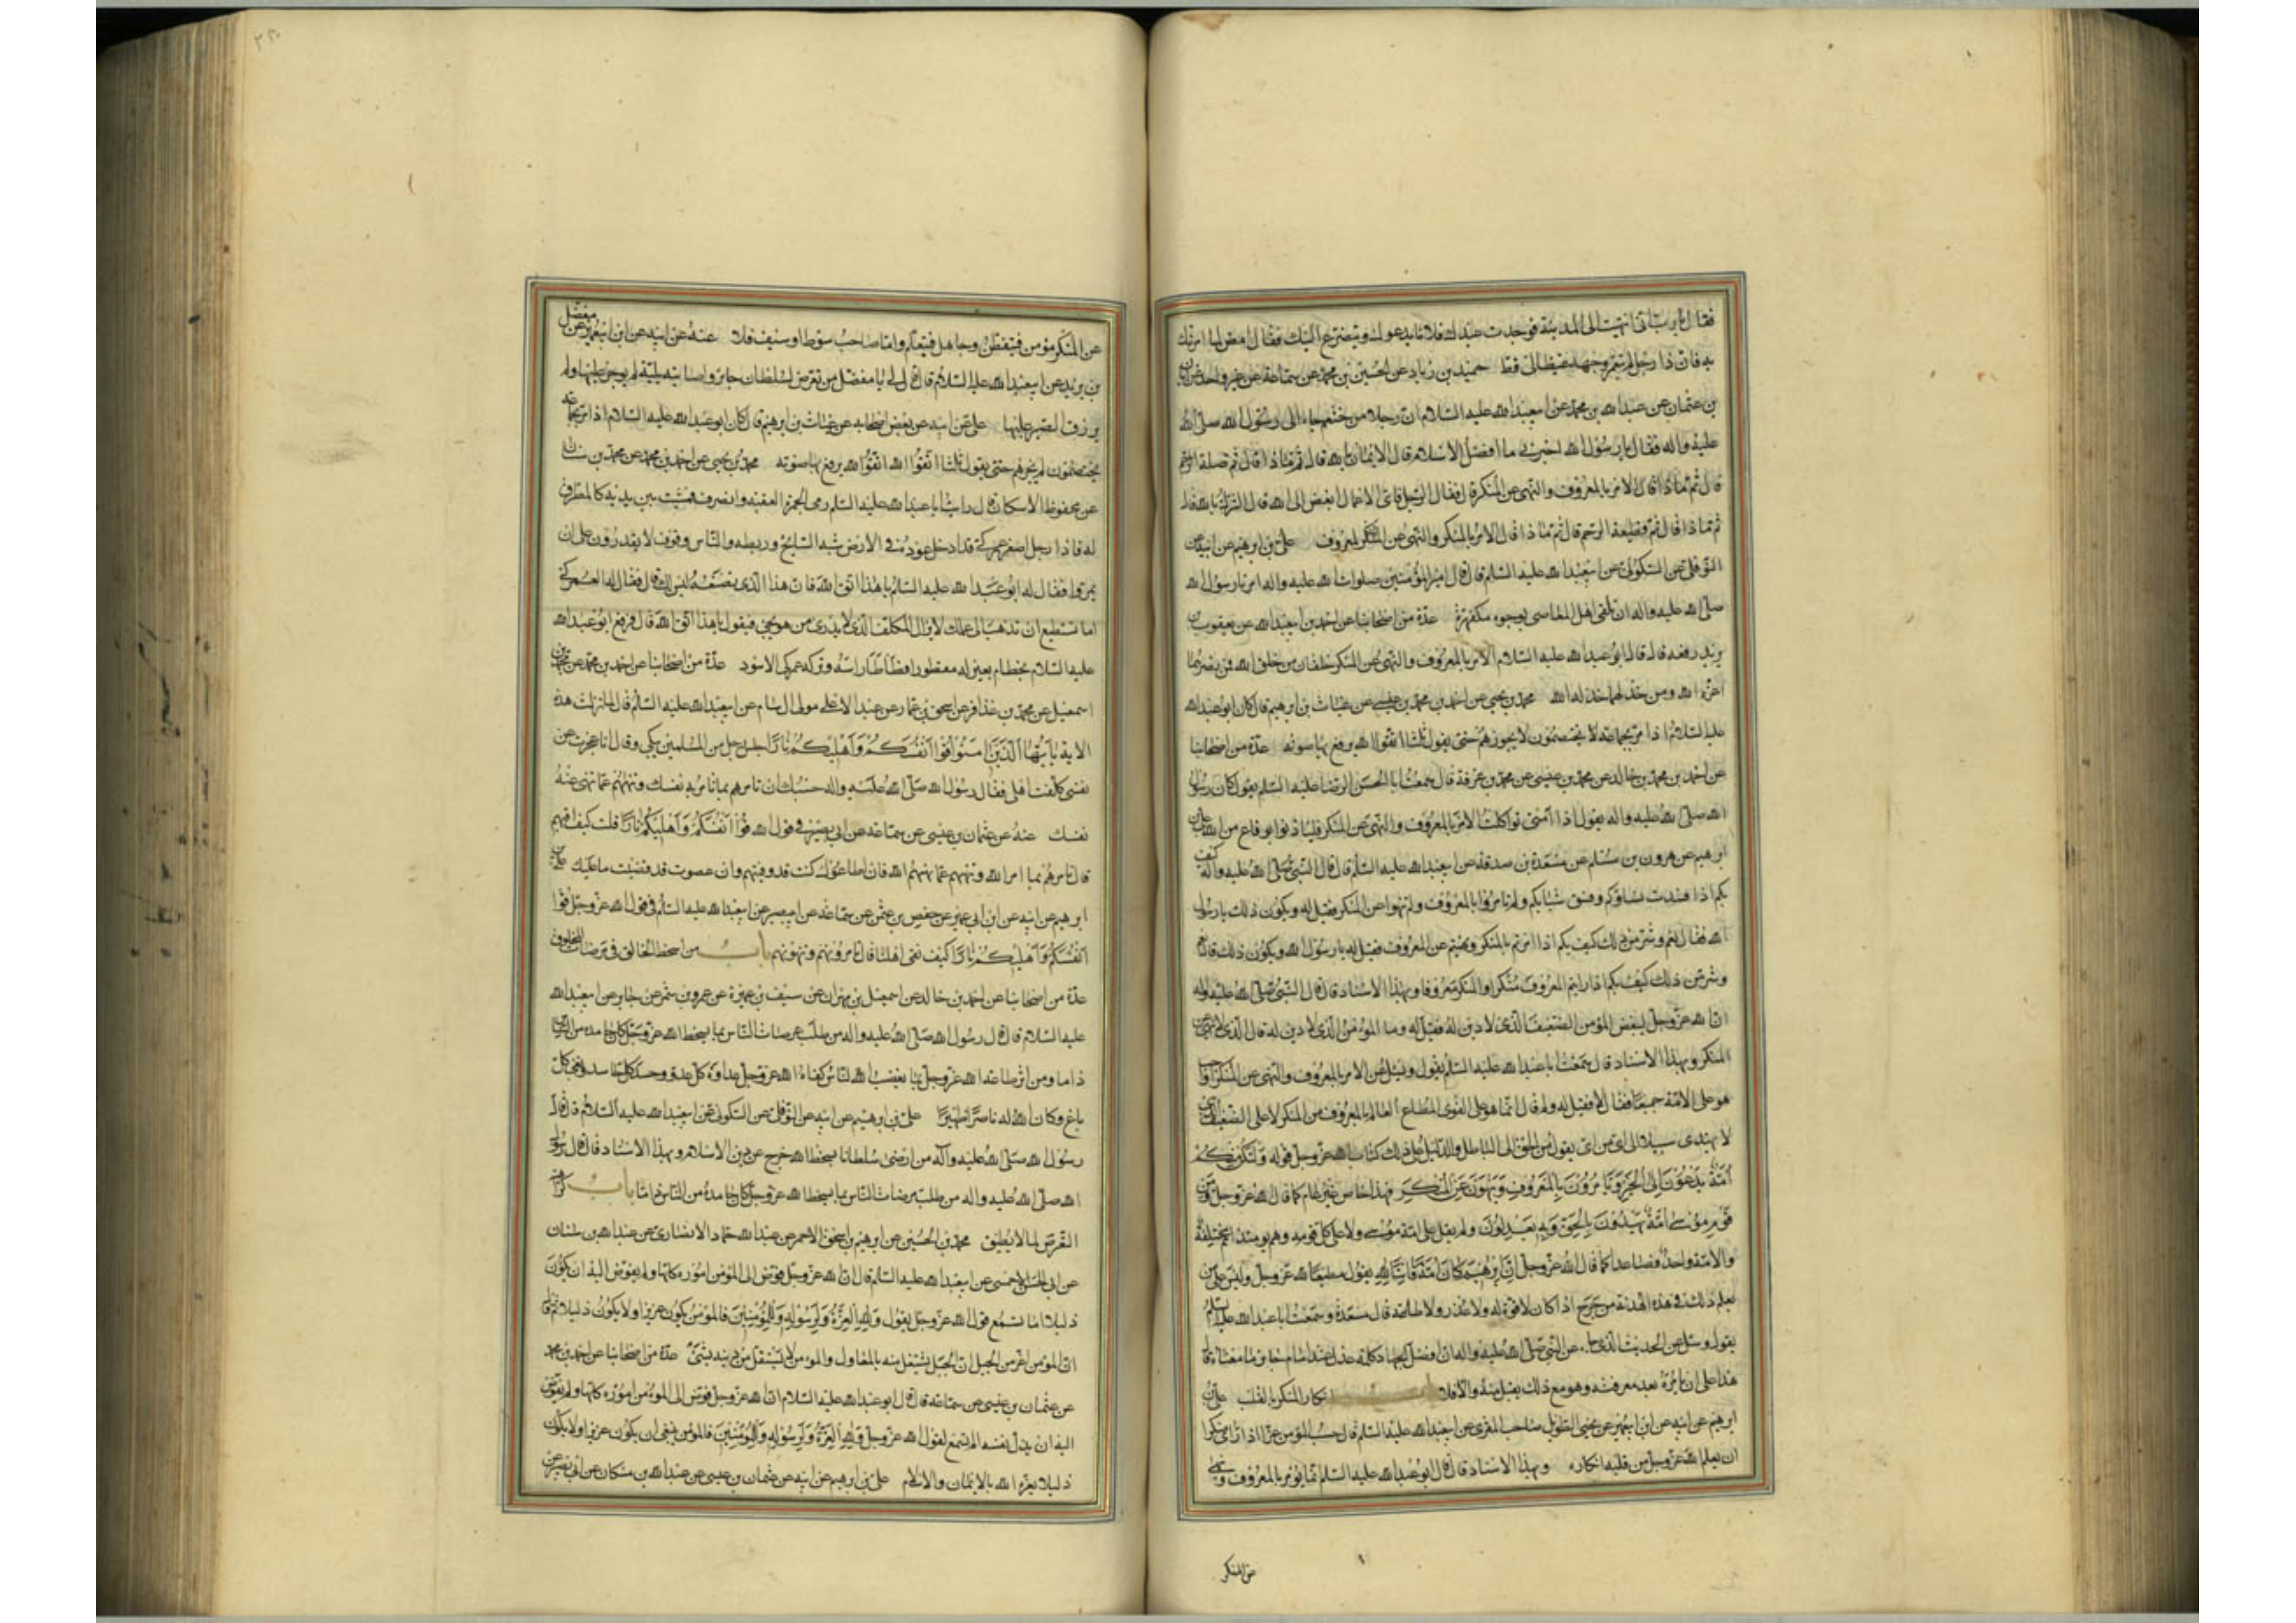 فقال يا رب اني انتهيت الى المدينة فوجدت عبدك فلانا يدعوك ويتضرع اليك فقال امض لما امرتك
به فان ذا رجل لم يتمعر وجهه غيظا لي قط حميد بن زياد عن الحسين بن محمد عن سماعة عن غير واحد عن ابان
بن عثمان عن عبد الله بن محمد عن ابيعبدالله عليه السلام ان رجلا من خثعم جاء الى رسول الله صلى الله
عليه واله فقال يا رسول الله اخبرني ما افضل الاسلام قال الايمان بالله قال ثم ماذا قال ثم صلة الرحم
قال ثم ماذا قال الامر بالمعروف والنهى عن المنكر قال فقال الرجل فاى الاعمال ابغض الى الله قال الشرك بالله قال
ثم ماذا قال ثم قطيعة الرحم قال ثم ماذا قال الامر بالمنكر والنهى عن المعروف على بن ابرهيم عن ابيه عن
النوفلى عن السكونى عن ابيعبدالله عليه السلم قال قال امير المؤمنين صلوات الله عليه واله امرنا رسول الله
صلى الله عليه واله ان نلقى اهل المعاصى بوجوه مكفهرة عدة من اصحابنا عن احمد بن ابيعبدالله عن يعقوب بن
يزيد رفعه قال قال ابو عبد الله عليه السلام الامر بالمعروف والنهى عن المنكر خلقان من خلق الله فمن نصرهما
اعزه الله ومن خذلهما خذله الله محمد بن يحيى عن احمد بن محمد بن عيسى عن غياث بن ابرهيم قال كان ابوعبدالله
عليه السلام اذا مر بجماعة لا يختصمون لا يجوزهم حتى يقول ثلثا اتقوا الله يرفع بها صوته عدة من اصحابنا
عن احمد بن محمد بن خالد عن محمد بن عيسى عن محمد بن عرفة قال سمعت ابا الحسن الرضا عليه السلم يقول كان رسول
الله صلى الله عليه واله يقول اذا امتى تواكلت الامر بالمعروف والنهى عن المنكر فليأذنوا بوقاع من الله على بن
ابرهيم عن هرون بن مسلم عن مسعدة بن صدقة عن ابيعبدالله عليه السلم قال قال النبى صلى الله عليه واله كيف
بكم اذا فسدت نساؤكم وفسق شبابكم ولم تامروا بالمعروف ولم تنهوا عن المنكر فقيل له ويكون ذلك يا رسول
الله فقال نعم وشر من ذلك كيف بكم اذا امرتم بالمنكر ونهيتم عن المعروف فقيل له يا رسول الله ويكون ذلك قال نعم
وشر من ذلك كيف بكم اذا رايتم المعروف منكرا والمنكر معروفا وبهذا الاسناد قال قال النبى صلى الله عليه واله
ان الله عز وجل ليبغض المؤمن الضعيف الذى لا دين له فقيل له وما المؤمن الذى لا دين له قال الذى لا ينهى عن
المنكر وبهذا الاسناد قال سمعت ابا عبد الله عليه السلم يقول وسئل عن الامر بالمعروف والنهى عن المنكر اواجب
هو على الامة جميعا فقال لا فقيل له ولم قال انما هو على القوى المطاع العالم بالمعروف من المنكر لا على الضعيف الذى
لا يهتدى سبيلا الى اى من اى يقول من الحق الى الباطل والدليل على ذلك كتاب الله عز وجل قوله ولتكن منكم
امة يدعون الى الخير ويامرون بالمعروف وينهون عن المنكر فهذا خاص غير عام كما قال الله عز وجل ومن
قوم موسى امة يهدون بالحق وبه يعدلون ولم يقل على امة موسى ولا على كل قومه وهم يومئذ امم مختلفة
والامة واحد فصاعدا كما قال الله عز وجل ان ابرهيم كان امة قانتا لله يقول مطيعا لله عز وجل وليس على من
يعلم ذلك فى هذه الهدنة من حرج اذا كان لا قوة له ولا عذر ولا طاعة قال مسعدة وسمعت ابا عبد الله عليه السلم
يقول وسئل عن الحديث الذى جاء عن النبى صلى الله عليه واله ان افضل الجهاد كلمة عدل عند امام جاير ما معناه قال
هذا على ان يامره بعد معرفته وهو مع ذلك يقبل منه والا فلا باب انكار المنكر بالقلب على بن
ابرهيم عن ابيه عن ابن ابيعمير عن يحيى الطويل صاحب المقرى عن ابيعبدالله عليه السلم قال حسب المؤمن عزا اذا راى منكرا
ان يعلم الله عز وجل من قلبه انكاره وبهذا الاسناد قال قال ابو عبد الله عليه السلم انما يؤمر بالمعروف وينهى
عن المنكر
عن المنكر مؤمن فيتعظ وجاهل فيتعلم واما صاحب سوط او سيف فلا عنه عن ابيه عن ابن ابيعمير عن مفضل
بن يزيد عن ابيعبدالله عليه السلام قال قال لى يا مفضل من تعرض لسلطان جائر فاصابته بلية لم يوجر عليها ولم
يرزق الصبر عليها على عن ابيه عن بعض اصحابه عن غياث بن ابرهيم قال كان ابو عبد الله عليه السلام اذا مر بجماعة
يختصمون لم يجزهم حتى يقول ثلثا اتقوا الله اتقوا الله يرفع بها صوته محمد بن يحيى عن احمد بن محمد عن محمد بن سنان
عن محفوظ الاسكاف قال رايت ابا عبد الله عليه السلم رمى الجمرة العقبة وانصرف فمشيت بين يديه كالمطرق
له فاذا رجل اصفر عمركى قد ادخل عودة فى الارض شبه السابخ وربطه والناس وقوف لا يقدرون على ان
يمروا فقال له ابو عبد الله عليه السلم يا هذا اتق الله فان هذا الذى تصنعه ليس لك قال فقال له العمركى
اما تستطيع ان تذهب الى عملك لا يزال المكلف الذى لا يدرى من هو يجئ فيقول يا هذا اتق الله قال فرفع ابو عبد الله
عليه السلام بخطام بعير له مقطورا فطاطا راسه وتركه عمركى الاسود عدة من اصحابنا عن احمد بن محمد عن محمد بن
اسمعيل عن محمد بن عذافر عن اسحق بن عمار عن عبد الاعلى مولى ال سام عن ابيعبدالله عليه السلم قال لما نزلت هذه
الاية يا ايها الذين امنوا قوا انفسكم واهليكم نارا جلس رجل من المسلمين يبكى وقال انا عجزت عن
نفسى كلفت اهلى فقال رسول الله صلى الله عليه واله حسبك ان تامرهم بما تامر به نفسك وتنهاهم عما تنهى عنه
نفسك عنه عن عثمان بن عيسى عن سماعة عن ابى بصير فى قول الله قوا انفسكم واهليكم نارا قلت كيف اقيهم
قال تامرهم بما امر الله وتنهيهم عما نهيهم الله فان اطاعوك كنت قد وقيتهم وان عصوك قد قضيت ما عليك على بن
ابرهيم عن ابيه عن ابن ابى عمير عن حفص بن عثمن عن سماعة عن ابيبصير عن ابيعبدالله عليه السلم فى قول الله عز وجل قوا
انفسكم واهليكم نارا كيف نقى اهلنا قال تامرونهم وتنهونهم باب من اسخط الخالق فى مرضات المخلوق
عدة من اصحابنا عن احمد بن خالد عن اسمعيل بن مهران عن سيف بن عميرة عن عمرو بن شمر عن جابر عن ابيعبدالله
عليه السلام قال قال رسول الله صلى الله عليه واله من طلب مرضات الناس بما يسخط الله عز وجل كان حامده من الناس
ذاما ومن اثر طاعة الله عز وجل بما يغضب الناس كفاه الله عز وجل عداوة كل عدو وحسد كل حاسد وبغى كل
باغ وكان الله له ناصرا ظهيرا على بن ابرهيم عن ابيه عن النوفلى عن السكونى عن ابيعبدالله عليه السلام قال قال
رسول الله صلى الله عليه واله من ارضى سلطانا بسخط الله خرج عن دين الاسلام وبهذا الاسناد قال قال رسول
الله صلى الله عليه واله من طلب مرضات الناس بما يسخط الله عز وجل كان حامده من الناس ذاما باب كراهية
التعرض لما لا يطيق محمد بن الحسين عن ابرهيم بن اسحق الاحمر عن عبد الله حماد الانصارى عن عبد الله بن سنان
عن ابى الحسن الاحمسى عن ابيعبدالله عليه السلم قال ان الله عز وجل فوض الى المؤمن اموره كلها ولم يفوض اليه ان يكون
ذليلا اما تسمع قول الله عز وجل يقول ولله العزة ولرسوله وللمؤمنين فالمؤمن يكون عزيزا ولا يكون ذليلا ثم قال
ان المؤمن اعز من الجبل ان الجبل يستقل منه بالمعاول والمؤمن لا يستقل من دينه بشئ عدة من اصحابنا عن احمد بن محمد
عن عثمان بن عيسى عن سماعة قال قال ابو عبد الله عليه السلام ان الله عز وجل فوض الى المؤمن اموره كلها ولم يفوض
اليه ان يذل نفسه الم تسمع لقول الله عز وجل ولله العزة ولرسوله وللمؤمنين فالمؤمن ينبغى ان يكون عزيزا ولا يكون
ذليلا يعزه الله بالايمان والاسلام على بن ابرهيم عن ابيه عن عثمان بن عيسى عن عبد الله بن مسكان عن ابى بصير عن